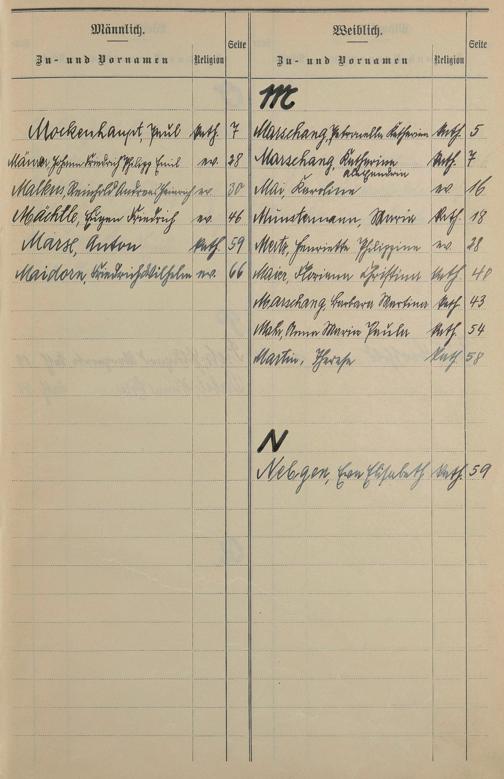 Männlich. Weiblich.
Zu- und Vornamen Religion Seite Zu- und Vornamen Religion Seite
M
Mockenhaupt, Paul Kath. 7 Marschang, Petronella Katharina Kath. 5
Männer, Johann Friedrich Philipp Emil ev. 28 Marschang, Katharina Kath. 7
Malkus, Reinhold Andreas Heinrich ev. 30 Mai, Karoline ev 16
Mächtle, Eugen Friedrich ev. 46 Münstermann, Maria Kath. 18
Marse, Anton Kath. 59 Mertz, Henriette Philippine ev. 28
Maidorn, Friedrich Wilhelm ev. 66 Maier, Floriana Christina Kath. 40
Marschang, Barbara Martina Kath. 43
Anna Maria Paula Kath. 54
Martin, Therese Kath. 58
N
Nebgen, Eva Elisabeth Kath. 59